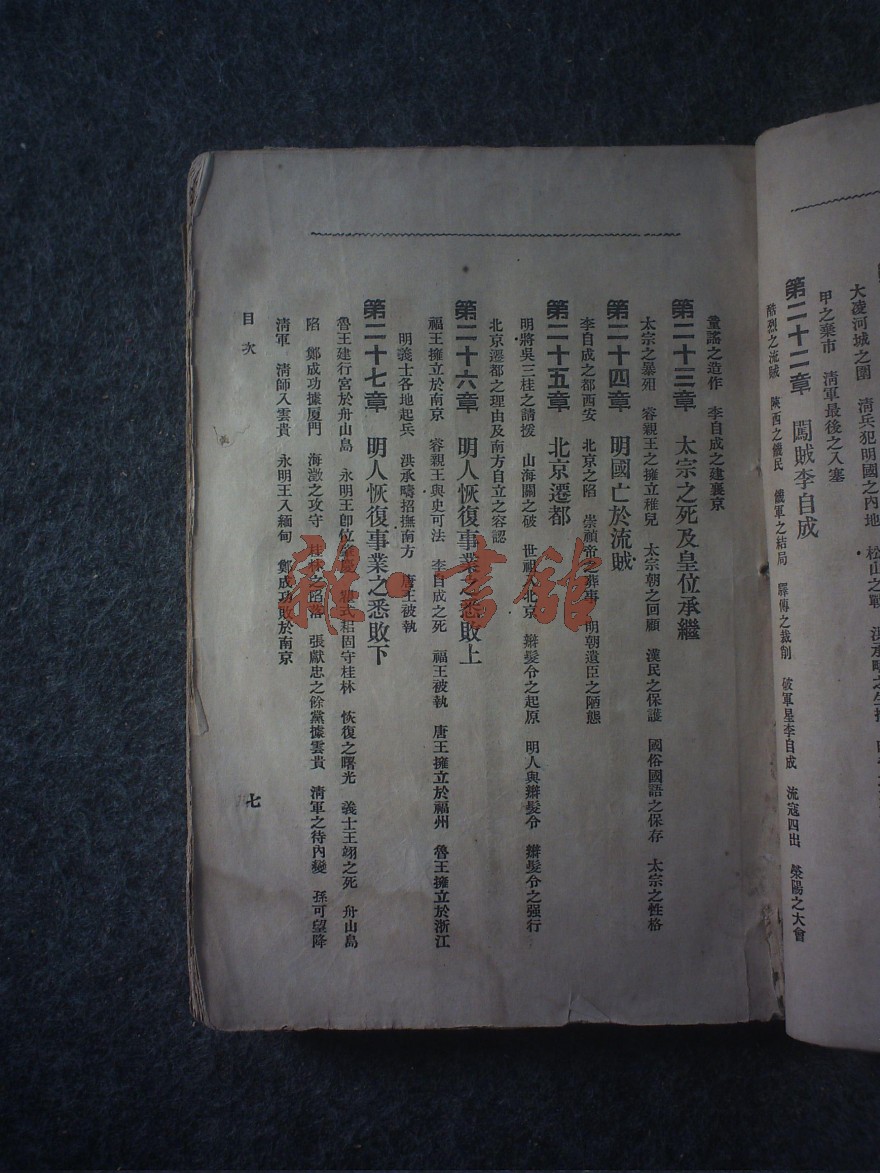 大凌河城之圍 清兵犯明國之內地 松山之戰
甲之棄市 清軍最後之入塞
第二十二章 闖賊李自成
酷烈之流賊 陝西之饑民 饑軍之結局 驛傳之裁削 破軍星李自成 流寇四出 滎陽之大會
童謠之造作 李自成之建襄京
第二十三章 太宗之死及皇位承繼
太宗之暴殂 睿親王之擁立稚兒 太宗朝之回顧 漢民之保護 國俗國語之保存 太宗之性格
第二十四章 明國亡於流賊
李自成之都西安 北京之陷 崇禎帝之葬事 明朝遺臣之陋態
第二十五章 北京遷都
明將吳三桂之請援 山海關之破 世祖 北京 辮髮令之起原 明人與辮髮令 辮髮令之强行
北京遷都之理由及南方自立之容認
第二十六章 明人恢復事業之悉敗上
福王擁立於南京 睿親王與史可法 李自成之死 福王被執 唐王擁立於福州 魯王擁立於浙江
明義士各地起兵 洪承疇招撫南方 唐王被執
第二十七章 明人恢復事業之悉敗下
魯王建行宮於舟山島 永明王卽位肇慶 式耜固守桂林 恢復之曙光 義士王翊之死 舟山島
陷 鄭成功據厦門 海澂之攻守 桂林之陷落 張獻忠之餘黨據雲貴 淸軍之待內變 孫可望降
淸軍 淸師入雲貴 永明王入緬甸 鄭成功敗於南京
目次
七
雜·書館